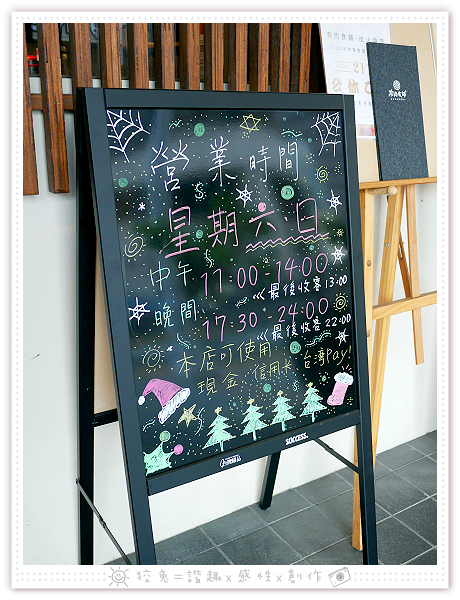 有肉食鋪-炭火燒肉
21
公休
營業時間
星期六、日
中午 11:00-14:00
<<最後收客 13:00
晚間 17:30-24:00
<<最後收客 22:00
本店可使用
現金 信用卡 台灣Pay!
SUCCESS.
狡兔=諧趣x感性x創作